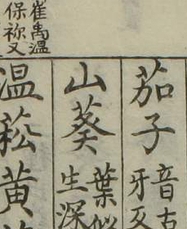 茄子
音古
牙
山葵
葉似
生深
崔禹温
保祢又
温菘黄